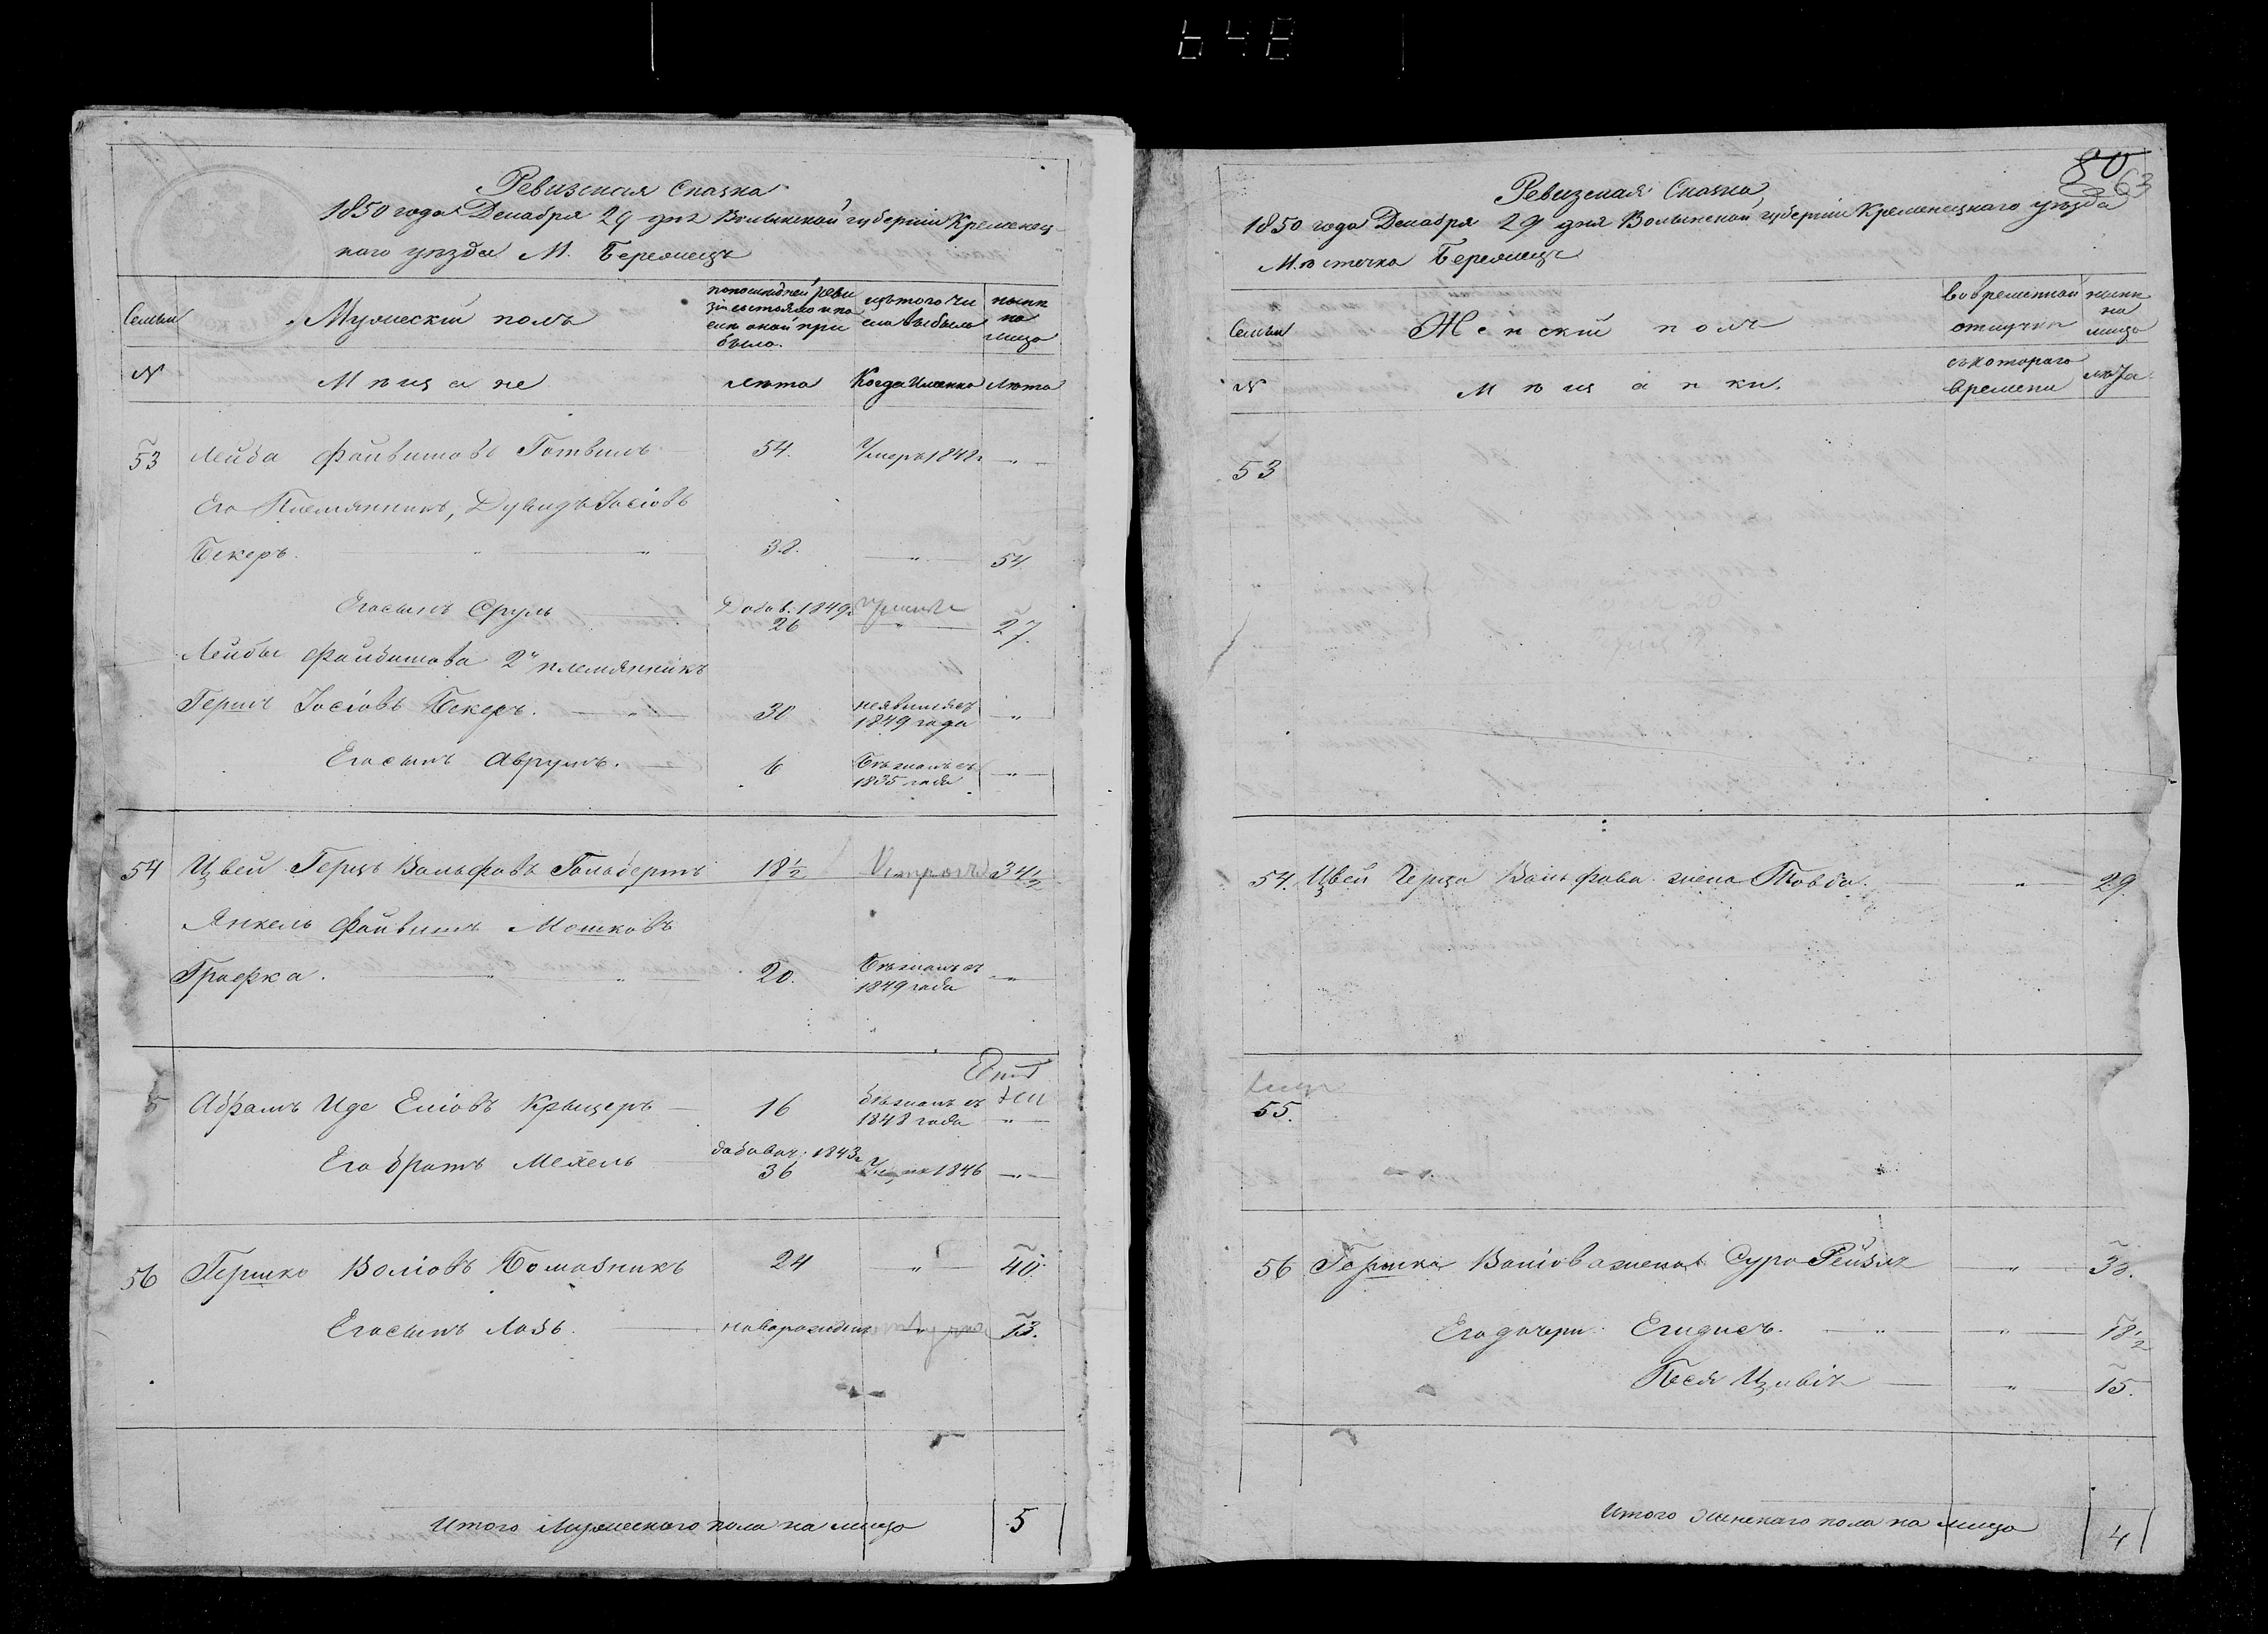 648
Ревизская Сказка
1850 года Декабря 29 дня Волынской губерніи Кременец
каго уѣзда М. Бережецъ
Семьи
Мужескій полъ
по последней реви
зіи состояло и по
слѣ оной при
было.
изъ того чи
сла выбыло
нынѣ
на
лицо
№
Мѣщане
лѣта
Когда Именно
Лѣта
53 Лейба Файвишовъ Готвилъ 54. Умеръ 1842г. "
Его Племянникъ, Дувидъ Іосіовъ
Бекеръ. " " 38. " 54
Его сынъ Сруль Добав. 1849г.
26 " 27.
Лейбы Файвишова 2й племянникъ
Гершъ Іосіовъ Бекеръ. " 30 неявился съ
1849 года "
Его сынъ Аврумъ. 6 Бѣжалъ съ
1835 года "
54 Цвей Герцъ Вольфовъ Гольдертъ 18½ 34½
Янкель Файвишъ Мошковъ
Графка. " " 20. Бѣжалъ съ
1849 года "
5 Абрамъ Иде Еліовъ Крыцеръ 16 бѣжалъ съ
1848 года "
Его братъ Мехель добавоч: 1843г.
36 1846 "
56 Гершко Воліовъ Бомазникъ 24 " 40.
Его сынъ Лазъ. новорожден " 13.
Итого Мужескаго пола на лицо 5
80
63
Ревизская Сказка
1850 года Декабря 29 дня Волынской губерніи Кременецкаго уѣзда
Мѣстечка Бережецъ
Семьи
Женскій полъ
во временной
отлучкѣ
нынѣ
на
лицо
№
Мѣщанки.
съ котораго
времени
лѣта
53
54. Цвей Герца Вольфова жена Товба. " 29.
55.
56 Гершка Воліова жена Сура Рейзля " 38.
Его дочери Егидисъ. " " 18½
Песя Цивія " 15.
Итого женскаго пола на лицо 4